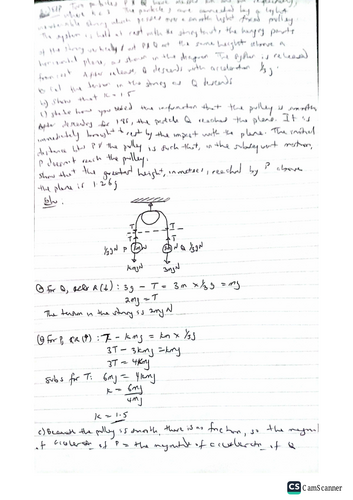 Two particles P & Q have masses km and 3m respectively,
where k < 3. The particles are connected by a light
string which passes over a smooth light fixed pulley.
The system is held at rest with the string taut, the hanging parts
of the string vertical and P & Q at the same height above a
horizontal plane, as shown in the diagram. The system is released
from rest. After release, Q descends with acceleration 1/3g.
the tension in the string as Q descends
b) Show that k = 1.5
c) State how you used the information that the pulley is smooth
After descending for 1.8s, the particle Q reached the plane. It is
immediately brought to rest by the impact with the plane. The initial
distance btw P & the pulley is such that, in the subsequent motion,
P doesn't reach the pulley.
Show that the greatest height, in metres, reached by P above
the plane is 1.26g
Soln.
T T
T T
1/3g P Q 1/3g
kmgN 3mgN
a) For Q, R(↓): 3mg - T = 3m x 1/3g = mg
2mg = T
The tension in the string is 2mg N
b) For P, R(↑): T - kmg = km x 1/3g
3T - 3kmg = kmg
3T = 4kmg
Subs for T: 6mg = 4kmg
k = 6mg
4mg
k = 1.5
c) Because the pulley is smooth, there is no friction, so the magnitude
of acceleration of P = the magnitude of acceleration of Q
CS CamScanner